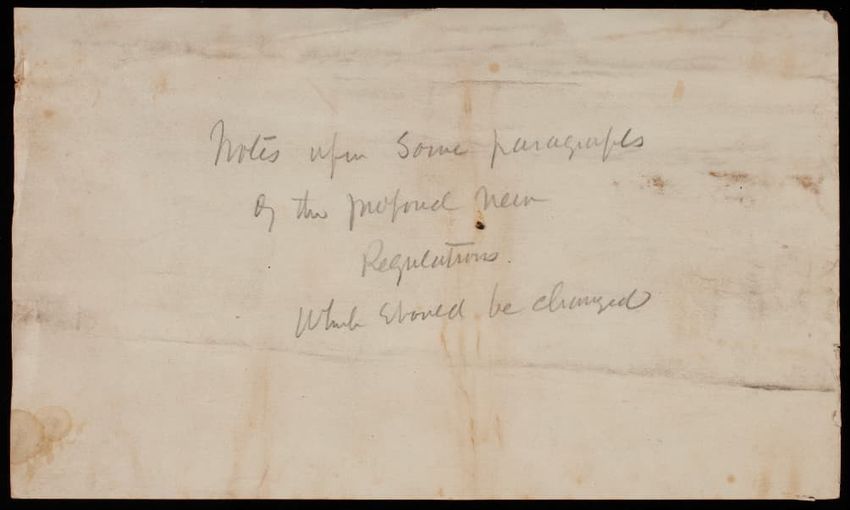 Notes upon Some paragraphs
of the proposed new
Regulations.
Which should be changed